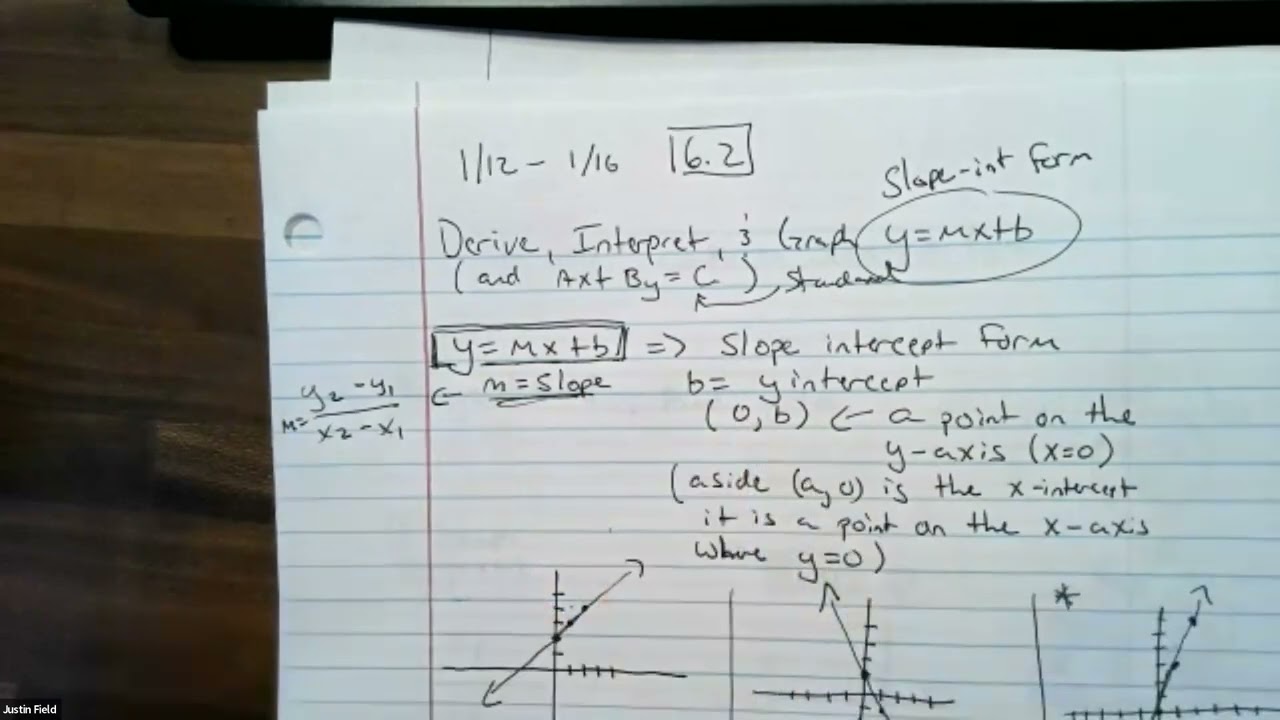 1/12 - 1/16 16.2
Slope-int form
Derive, Interpret, & Graph y=mx+b
(and Ax+By=C) Standard
y=mx+b => Slope intercept form
← m=slope b= y intercept
m= y₂-y₁ / x₂-x₁
(0,b) ← a point on the
y-axis (x=0)
(aside (a,0) is the x-intercept
it is a point on the x-axis
where y=0)
*
Justin Field